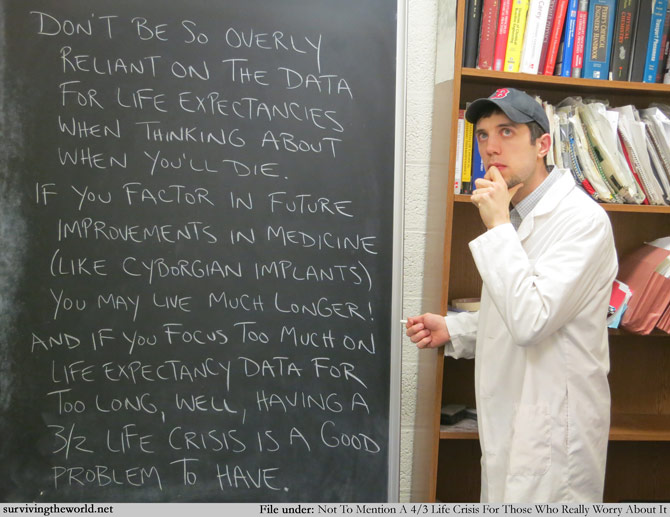 DON'T BE SO OVERLY
RELIANT ON THE DATA
FOR LIFE EXPECTANCIES
WHEN THINKING ABOUT
WHEN YOU'LL DIE.
IF YOU FACTOR IN FUTURE
IMPROVEMENTS IN MEDICINE
(LIKE CYBORGIAN IMPLANTS)
YOU MAY LIVE MUCH LONGER!
AND IF YOU FOCUS TOO MUCH ON
LIFE EXPECTANCY DATA FOR
TOO LONG, WELL, HAVING A
3/2 LIFE CRISIS IS A GOOD
PROBLEM TO HAVE.
B
survivingtheworld.net
File under: Not To Mention A 4/3 Life Crisis For Those Who Really Worry About It